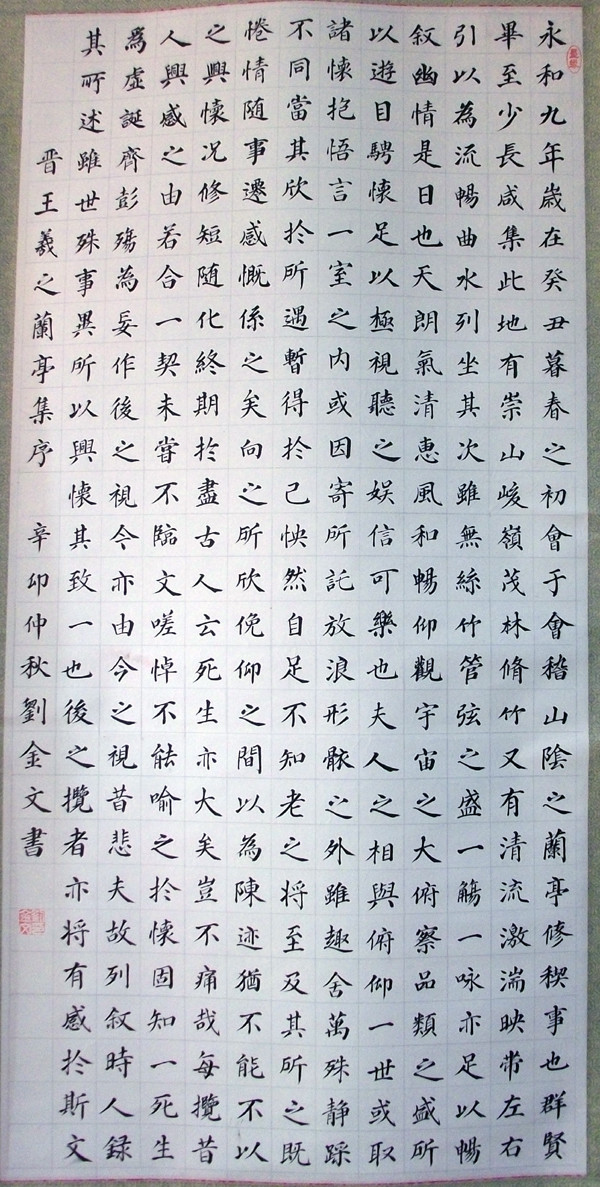 永和九年歲在癸丑暮春之初會于會稽山陰之蘭亭修稧事也群賢
畢至少長咸集此地有崇山峻嶺茂林脩竹又有清流激湍映帶左右
引以為流暢曲水列坐其次雖無絲竹管弦之盛一觴一咏亦足以暢
叙幽情是日也天朗氣清惠風和暢仰觀宇宙之大俯察品類之盛所
以遊目騁懷足以極視聽之娛信可樂也夫人之相與俯仰一世或取
諸懷抱悟言一室之内或因寄所託放浪形骸之外雖趣舍萬殊静踩
不同當其欣於所遇暫得於己怏然自足不知老之将至及其所之既
惓情随事遷感慨係之矣向之所欣俛仰之間以為陳迹猶不能不以
之興懷况修短随化終期於盡古人云死生亦大矣豈不痛哉每攬昔
人興感之由若合一契未嘗不臨文嗟悼不能喻之於懷固知一死生
為虛誕齊彭殤為妄作後之視今亦由今之視昔悲夫故列叙時人録
其所述雖世殊事異所以興懷其致一也後之攬者亦将有感於斯文
晋王羲之蘭亭集序 辛卯仲秋劉金文書